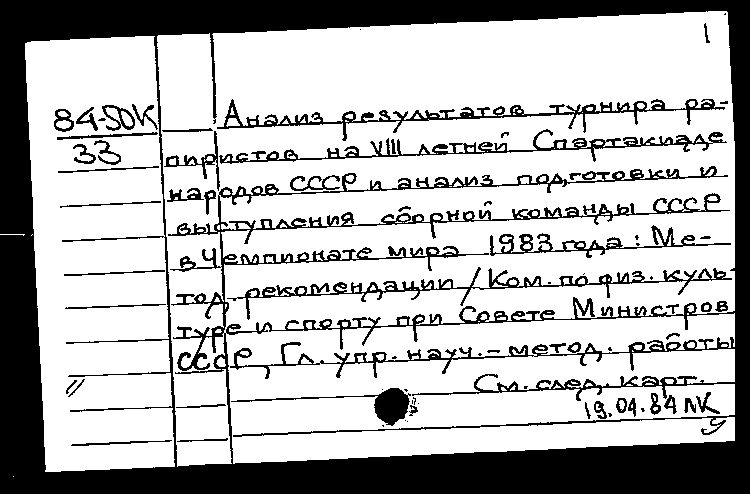 1
84-50К
33
Анализ результатов турнира ра-
пиристов на VIII летней Спартакиаде
народов СССР и анализ подготовки и
выступления сборной команды СССР
в Чемпионате мира 1983 года: Ме-
тод. рекомендации / Ком. по физ. куль-
туре и спорту при Совете Министров
СССР, Гл. упр. науч.-метод. работы
См. след. карт.
19.04.84 ЛК